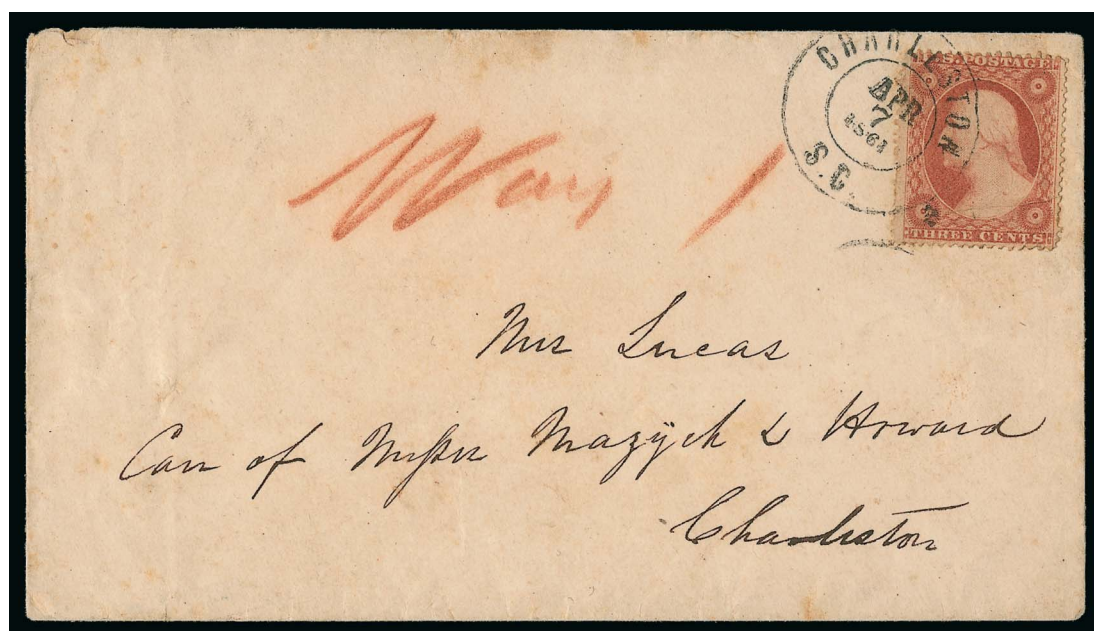 CHARLESTON
S.C.
APR
7
1861
U.S. POSTAGE
THREE CENTS
Way 1
Mrs Lucas
Care of Messrs Mazÿck & Howard
Charleston